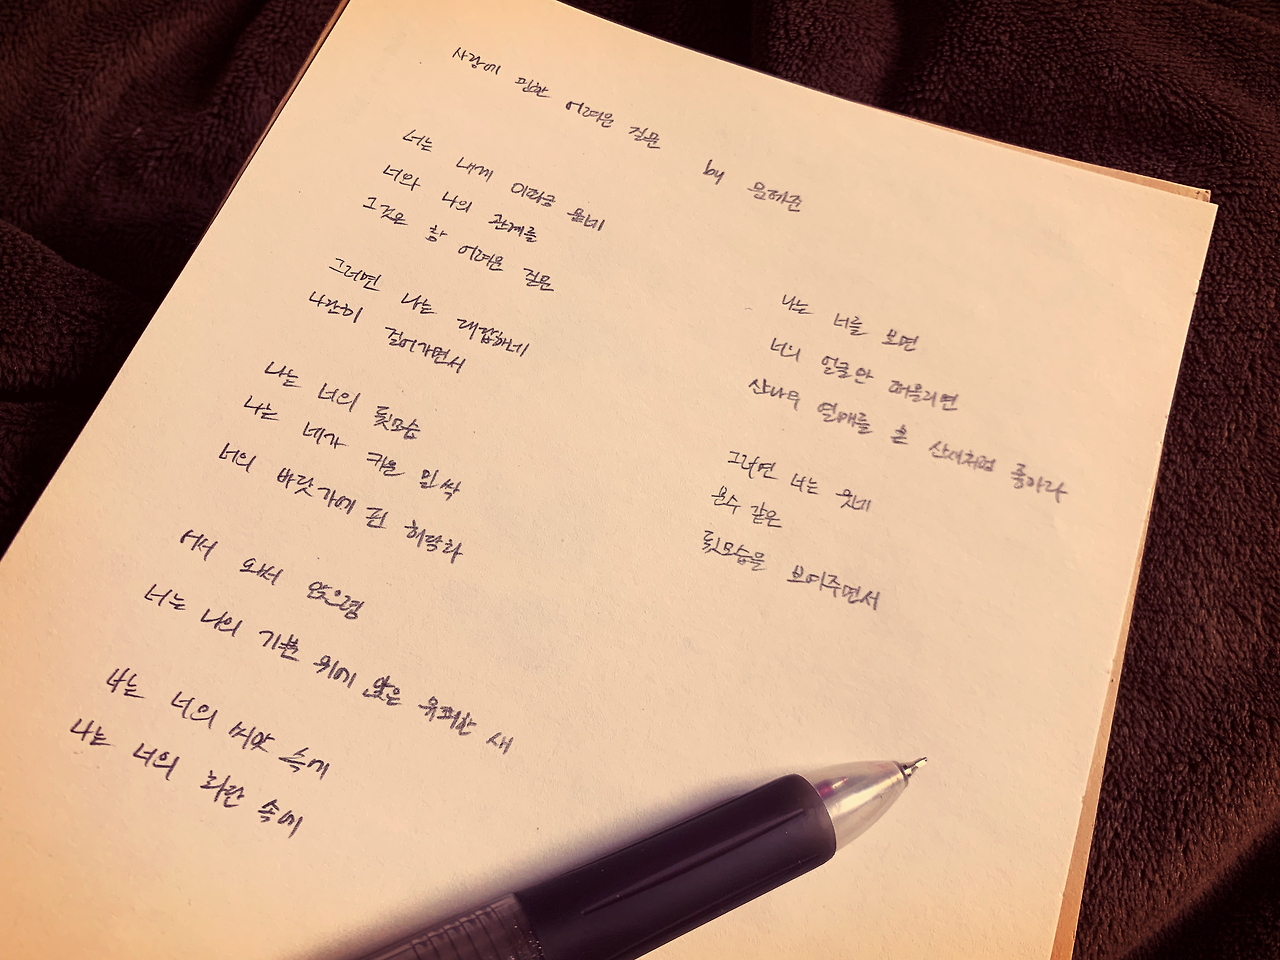 사랑에 관한 어려운 질문 by 문혜진
너는 내게 이따금 묻네
너와 나의 관계를
그것은 참 어려운 질문
그러면 나는 대답하네
나란히 걸어가면서
나는 너의 뒷모습
나는 네가 키운 밀싹
너의 바닷가에 핀 해당화
어서 와서 앉으렴
너는 나의 기쁨 위에 앉은 유쾌한 새
나는 너의 씨앗 속에
나는 너의 화단 속에
나는 너를 보면
너의 얼굴만 떠올리면
산나무 열매를 쫀 산새처럼 좋아라
그러면 너는 웃네
문수 같은
뒷모습을 보여주면서